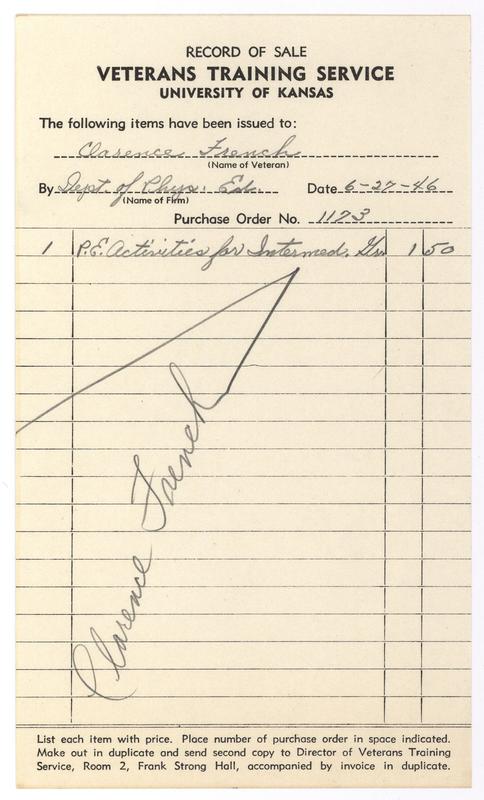 RECORD OF SALE
VETERANS TRAINING SERVICE
UNIVERSITY OF KANSAS
The following items have been issued to:
Clarence French
(Name of Veteran)
By Dept. of Phys. Ed. Date 6-27-46
(Name of Firm)
Purchase Order No. 1173
1 P.E. Activities for Intermed. Gr. 1 50
Clarence French
List each item with price. Place number of purchase order in space indicated.
Make out in duplicate and send second copy to Director of Veterans Training
Service, Room 2, Frank Strong Hall, accompanied by invoice in duplicate.